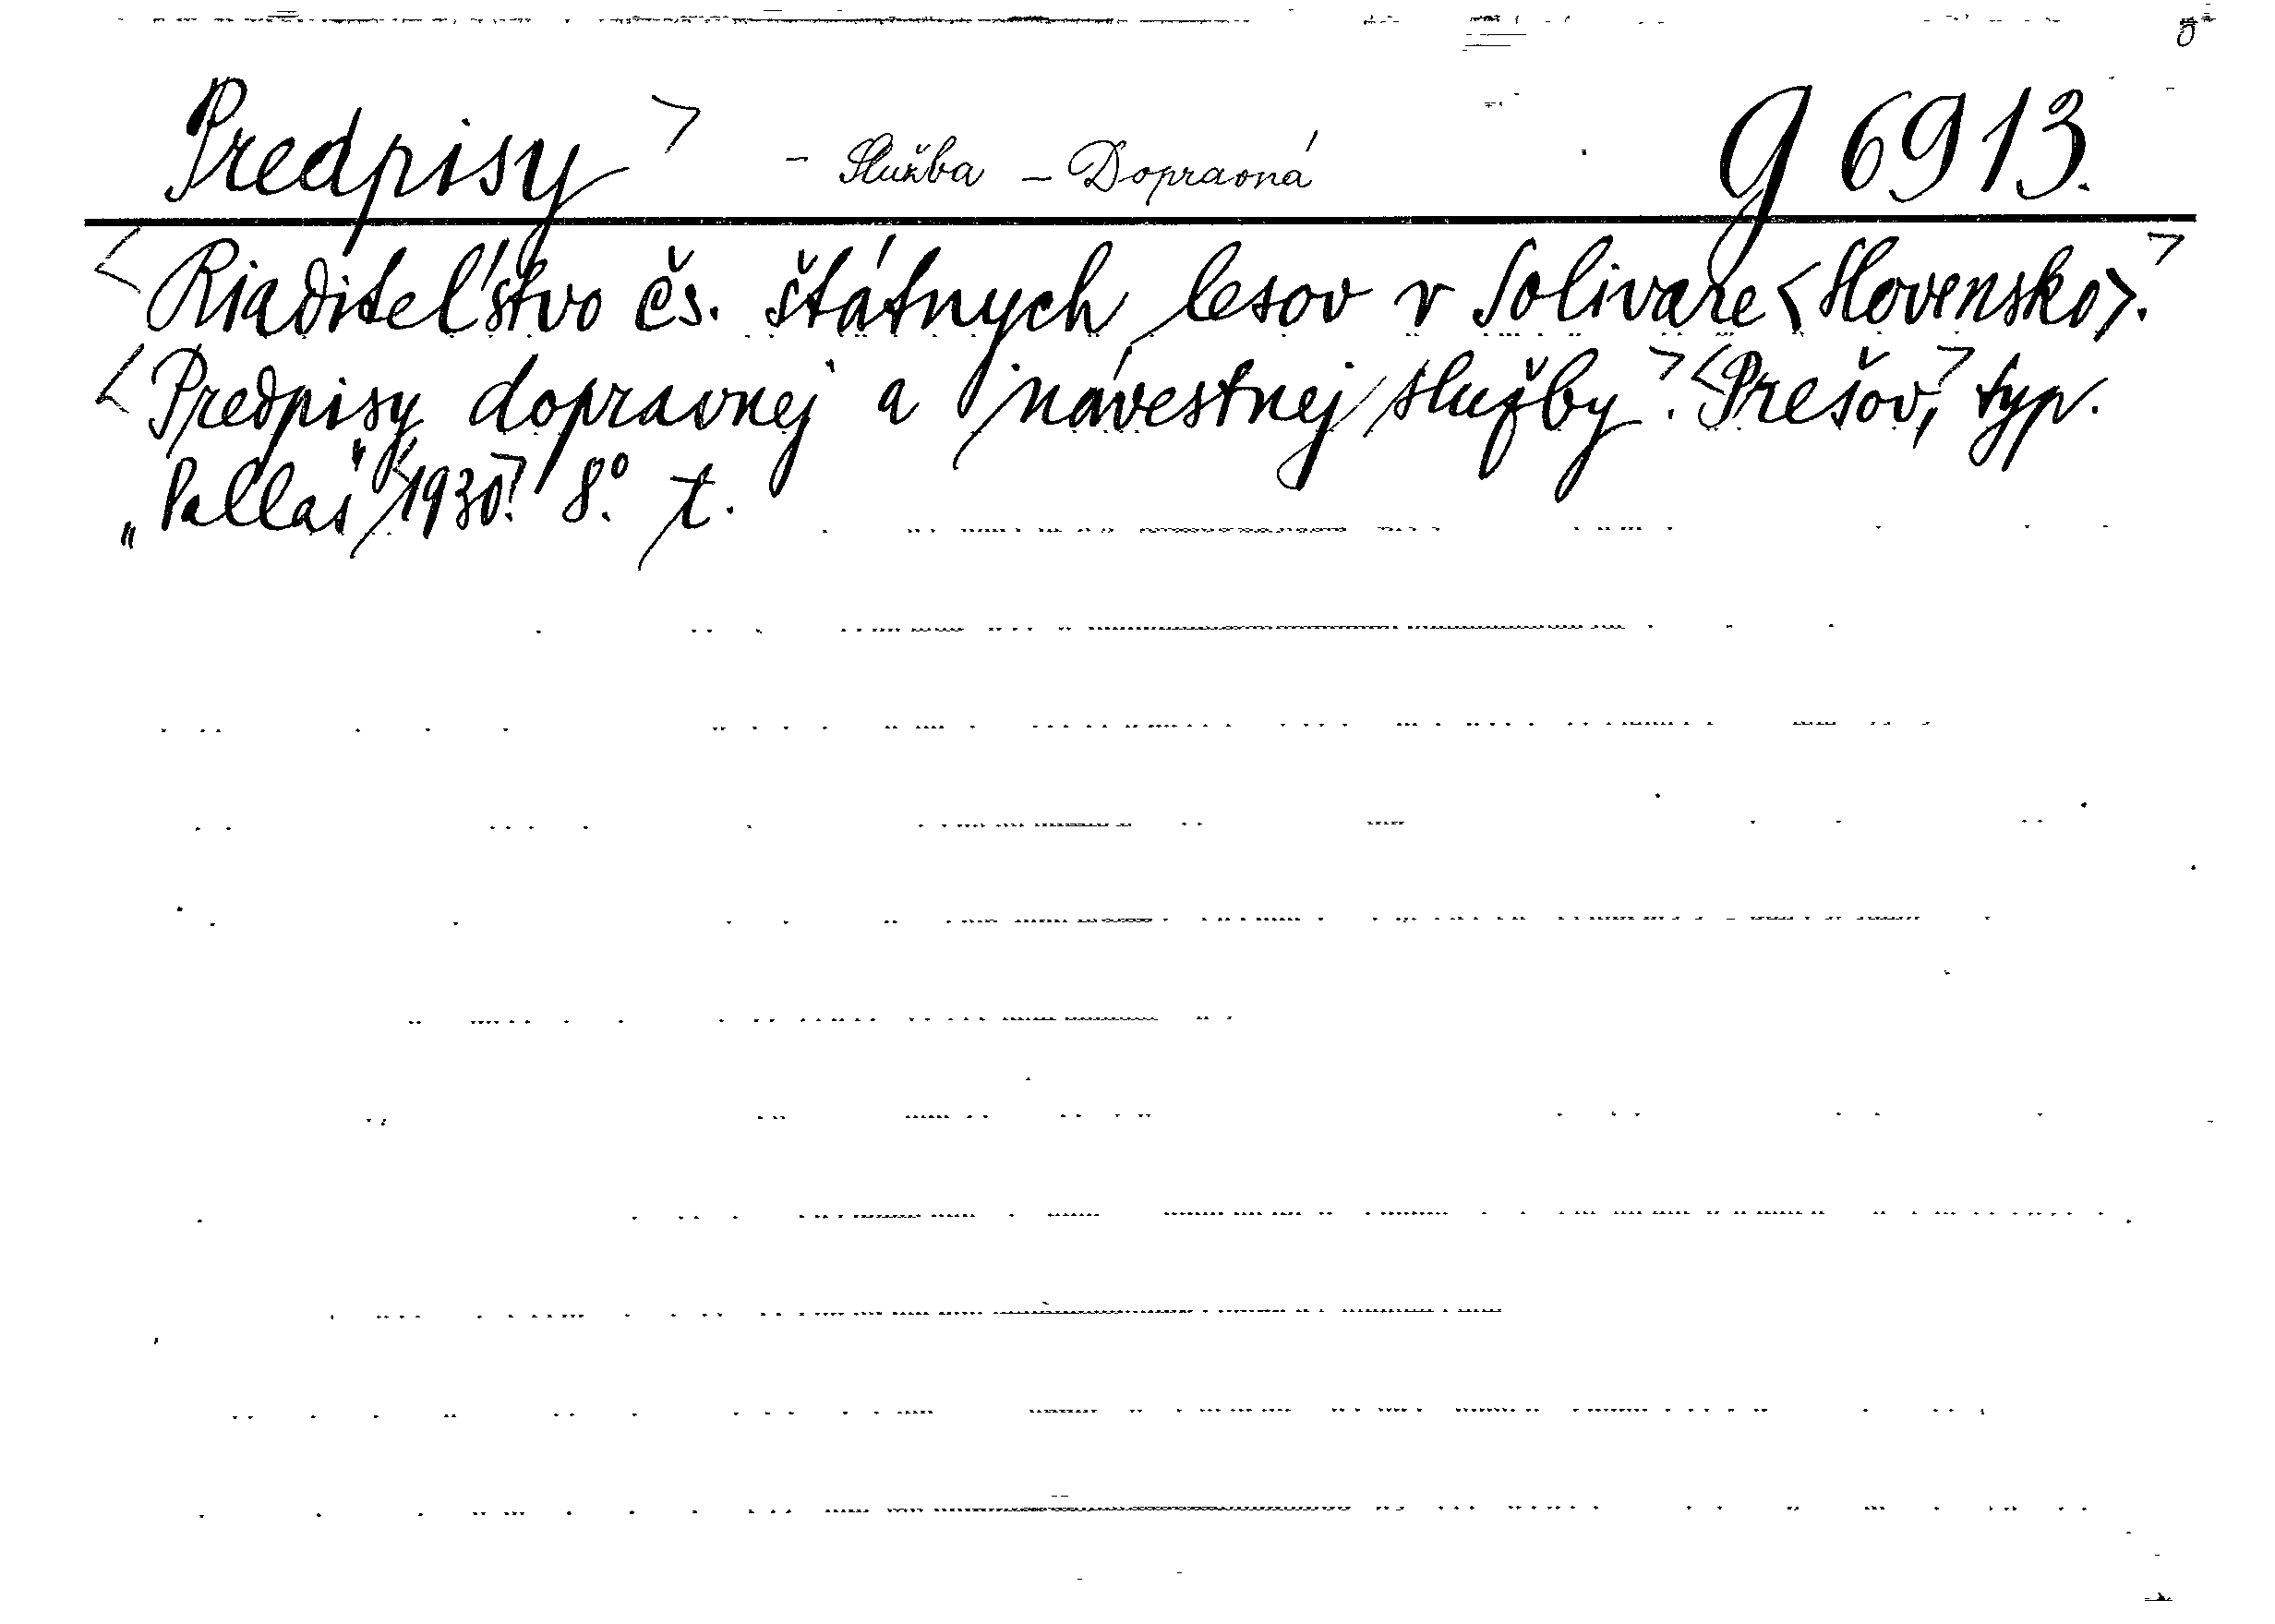 Predpisy> - Služba - Dopravná G 6913.
<Riaditeľstvo čs. štátnych lesov v Solivare <Slovensko>.>
<Predpisy dopravnej a návestnej služby>. <Prešov,> typ.
„Pallas" <1930>. 8°. t.